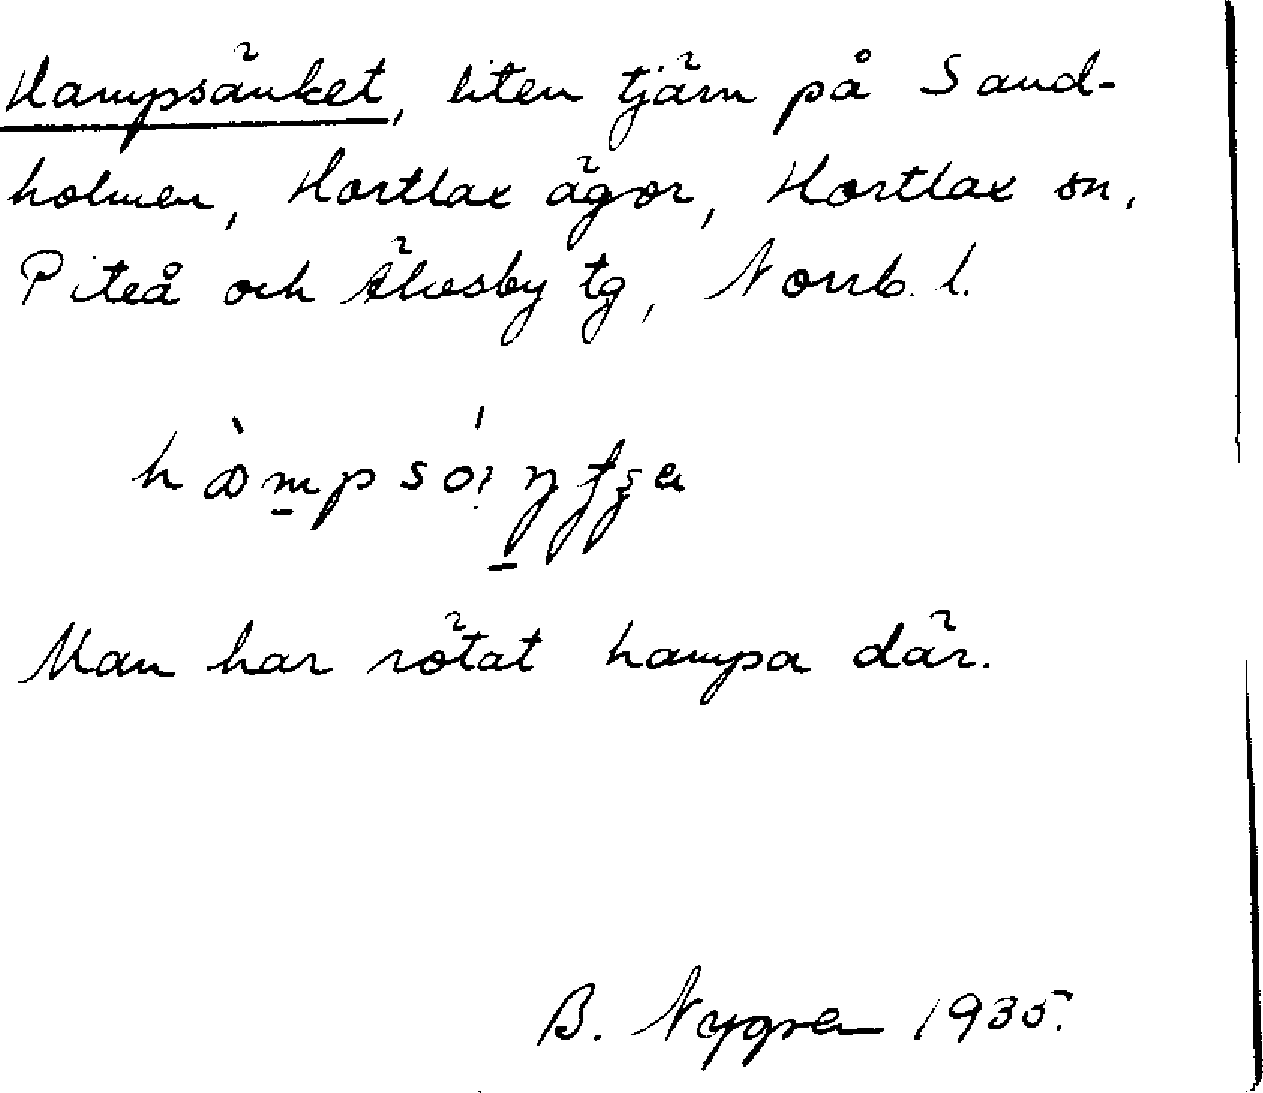 Hampsänket, liten tjärn på Sand-
holmen, Hortlax ägor, Hortlax sn,
Piteå och Älvsby tg, Norrb. l.
Man har rötat hampa där.
B. Nygren 1935.